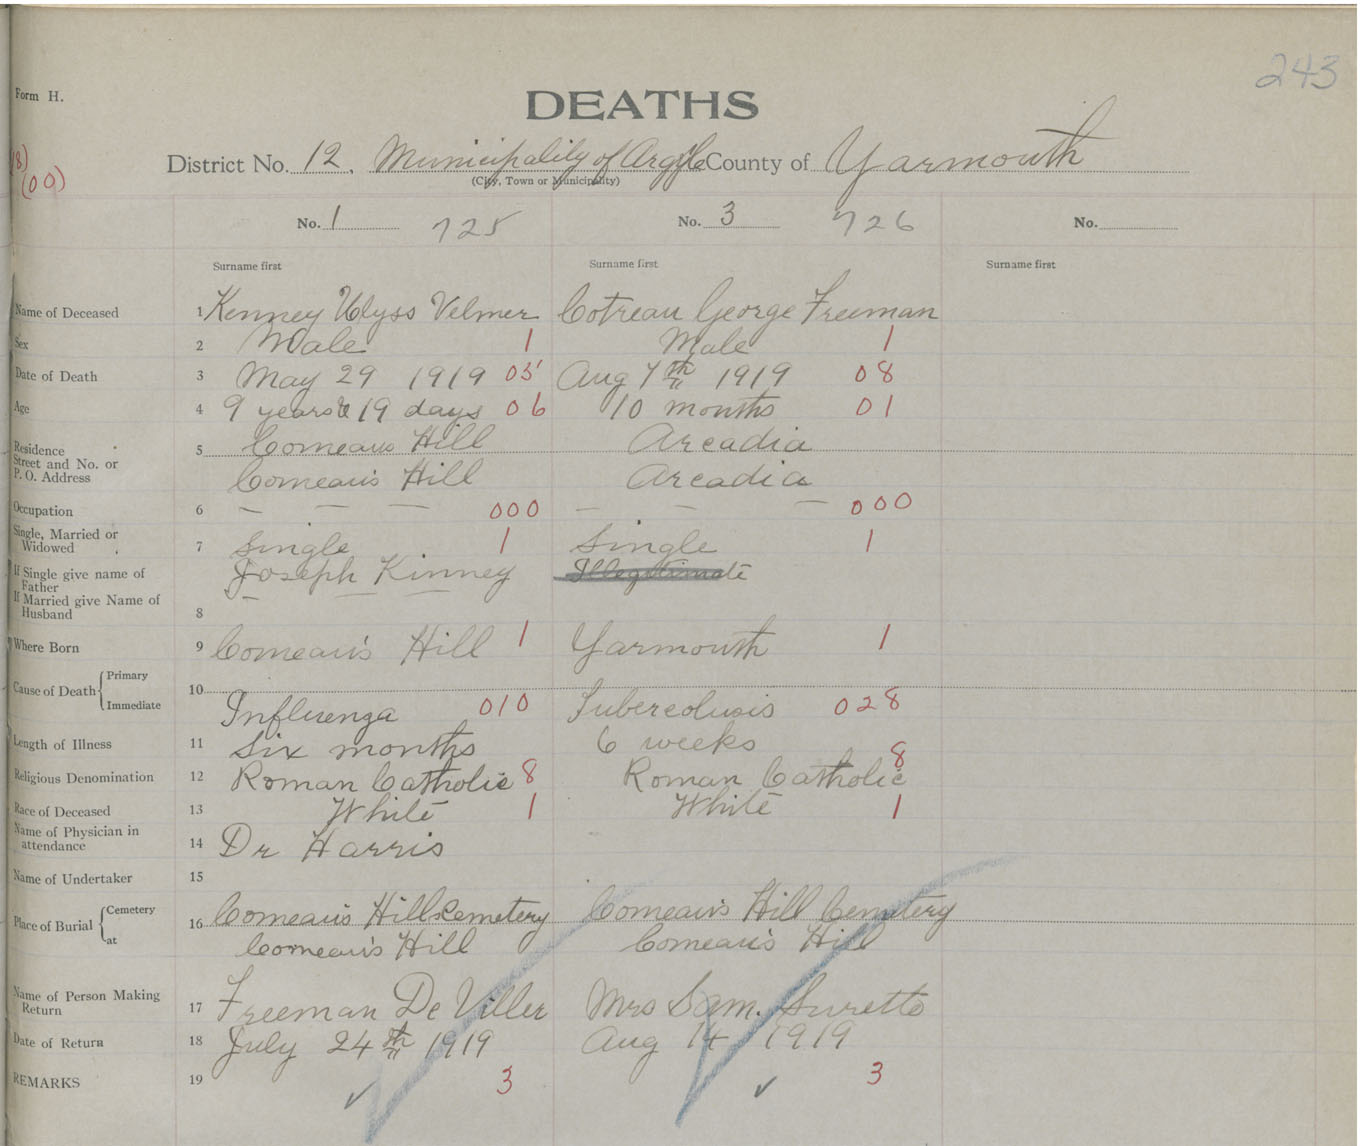 243
Form H.
DEATHS
(8)
(09)
District No. 12, Municipality of Argyle County of Yarmouth
(City, Town or Municipality)
No. 1 725 No. 3 726 No.
Surname first Surname first Surname first
Name of Deceased 1 Kenney Ulyss Velmer Cotreau George Freeman
Sex 2 Male 1 Male 1
Date of Death 3 May 29 1919 05 Aug 7th 1919 08
Age 4 9 years & 19 days 06 10 months 01
Residence 5 Comeaus Hill Arcadia
Street and No. or
P. O. Address Comeau's Hill Arcadia
Occupation 6 — — — 000 — — — 000
Single, Married or
Widowed 7 Single 1 Single 1
If Single give name of
Father Joseph Kinney Illegitimate
If Married give Name of
Husband 8 — — —
Where Born 9 Comeau's Hill 1 Yarmouth 1
Cause of Death { Primary 10
Immediate Influenza 010 Tubercolusis 028
Length of Illness 11 Six months 6 weeks
Religious Denomination 12 Roman Catholic 8 Roman Catholic 8
Race of Deceased 13 White 1 White 1
Name of Physician in
attendance 14 Dr Harris
Name of Undertaker 15
Place of Burial { Cemetery 16 Comeau's Hill Cemetery Comeau's Hill Cemetery
at Comeau's Hill Comeau's Hill
Name of Person Making
Return 17 Freeman De Viller Mrs Sam. Surette
Date of Return 18 July 24th 1919 Aug 14 1919
REMARKS 19 ✓ 3 ✓ 3